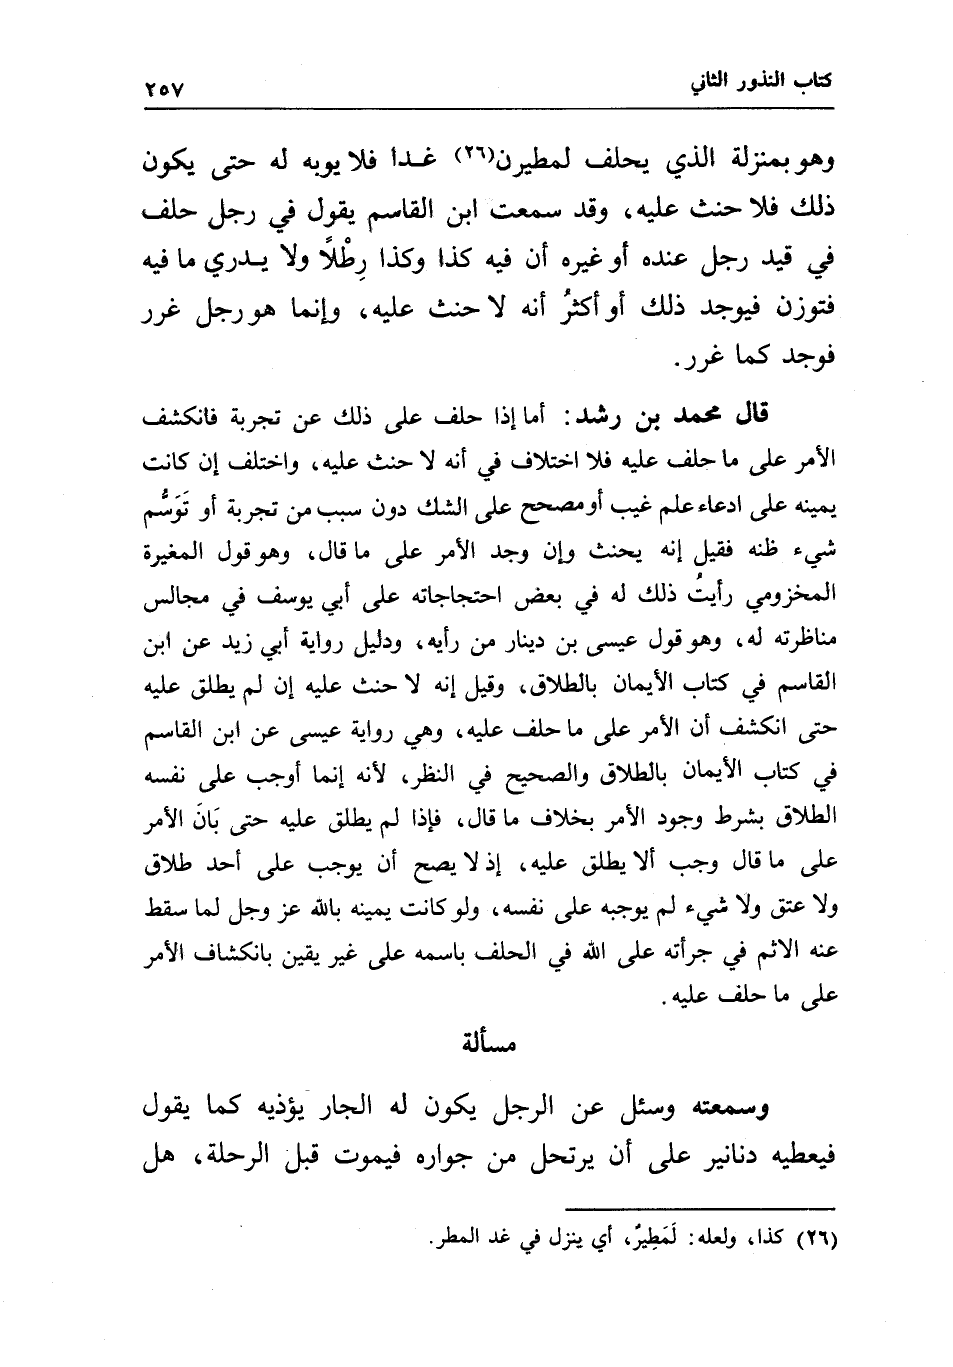 كتاب النذور الثاني
٢٥٧
وهو بمنزلة الذي يحلف لمطيرن(٢٦) غدا فلا يوبه له حتى يكون
ذلك فلا حنث عليه، وقد سمعت ابن القاسم يقول في رجل حلف
في قيد رجل عنده أو غيره أن فيه كذا وكذا رِطْلاً ولا يدري ما فيه
فتوزن فيوجد ذلك أو أكثرُ أنه لا حنث عليه، وإنما هو رجل غرر
فوجد كما غرر.
قال محمد بن رشد: أما إذا حلف على ذلك عن تجربة فانكشف
الأمر على ما حلف عليه فلا اختلاف في أنه لا حنث عليه، واختلف إن كانت
يمينه على ادعاء علم غيب أو مصحح على الشك دون سبب من تجربة أو تَوَسُّم
شيء ظنه فقيل إنه يحنث وإن وجد الأمر على ما قال، وهو قول المغيرة
المخزومي رأيتُ ذلك له في بعض احتجاجاته على أبي يوسف في مجالس
مناظرته له، وهو قول عيسى بن دينار من رأيه، ودليل رواية أبي زيد عن ابن
القاسم في كتاب الأيمان بالطلاق، وقيل إنه لا حنث عليه إن لم يطلق عليه
حتى انكشف أن الأمر على ما حلف عليه، وهي رواية عيسى عن ابن القاسم
في كتاب الأيمان بالطلاق والصحيح في النظر، لأنه إنما أوجب على نفسه
الطلاق بشرط وجود الأمر بخلاف ما قال، فإذا لم يطلق عليه حتى بَانَ الأمر
على ما قال وجب ألا يطلق عليه، إذ لا يصح أن يوجب على أحد طلاق
ولا عتق ولا شيء لم يوجبه على نفسه، ولو كانت يمينه بالله عز وجل لما سقط
عنه الاثم في جرأته على الله في الحلف باسمه على غير يقين بانكشاف الأمر
على ما حلف عليه.
مسألة
وسمعته وسئل عن الرجل يكون له الجار يؤذيه كما يقول
فيعطيه دنانير على أن يرتحل من جواره فيموت قبل الرحلة، هل
(٢٦) كذا، ولعله: لَمَطِيرٌ، أي ينزل في غد المطر.